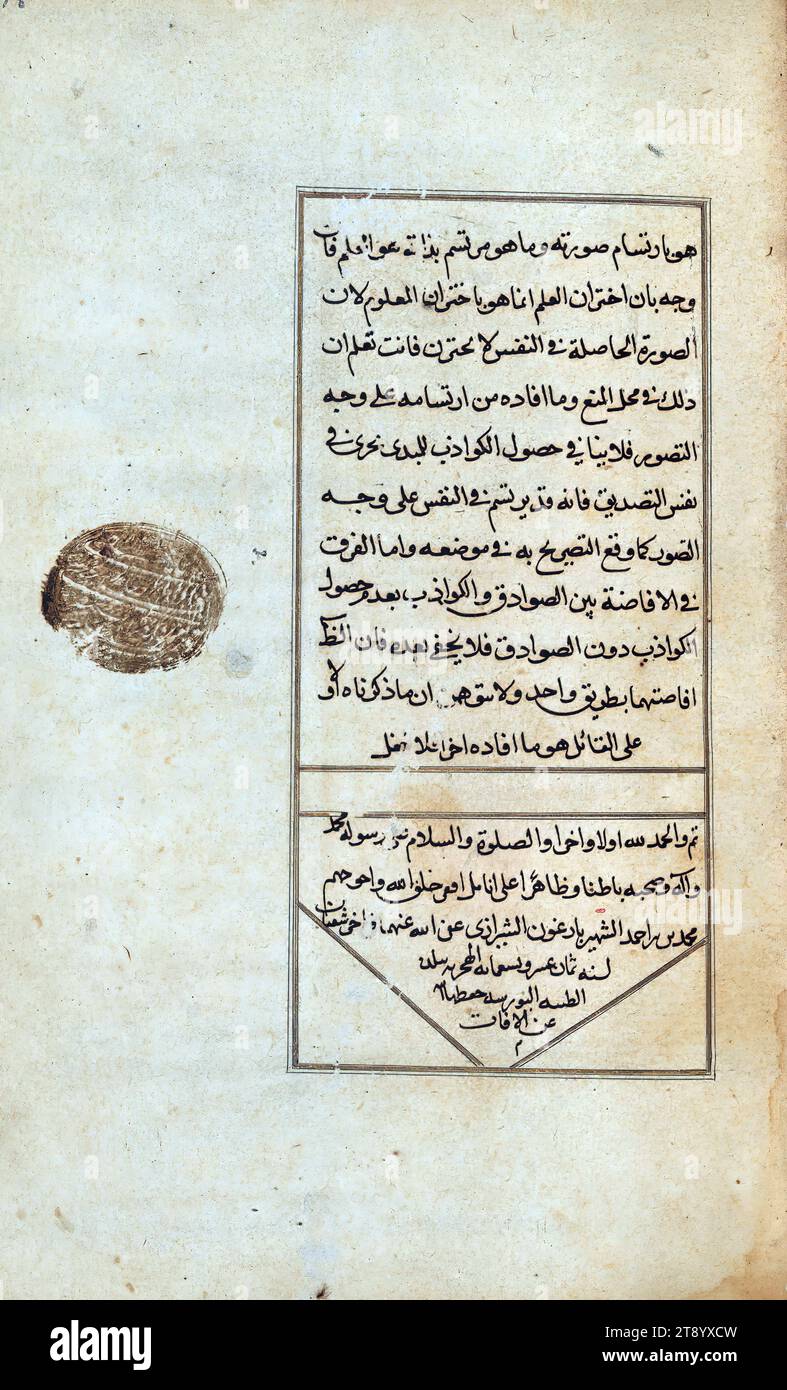 هو بارتسام صورته وما هو مرتسم بذاته هوا علم فان
وجه بان اختران العلم انما هو باختران المعلوم لان
الصورة الحاصلة فى النفس لا تخترن فانت تعلم ان
ذلك فى محل المنع وما افاده من ارتسامه على وجه
التصور فلا ينافى حصول الكواذب للمبدى تحرى فى
نفس التصديق فانه قد يرتسم فى النفس على وجه
التصور كما وقع التصريح به فى موضعه واما الفرق
فى الافاضة بين الصوادق والكواذب بعدم حصول
الكواذب دون الصوادق فلا يخفى بعده فان الظ
افاضتهما بطريق واحد ولا يتوهم ان ما ذكرناه لاو
على القائل هو ما افاده اخرا فلا تغفل
تم والحمد لله اولا واخرا والصلوة والسلام على رسوله محمد
واله وصحبه باطنا وظاهرا على انامل افقر خلق الله واحوجهم
محمد بن احمد الشهير بارغون الشيرازى عفى الله عنهما فى اخر شعبان
لسنه ثمان عشر وتسعمائه الهجريه ببلده
الطيبه
عن الافات
م
alamy
Image ID: 2T8YXCW
www.alamy.com